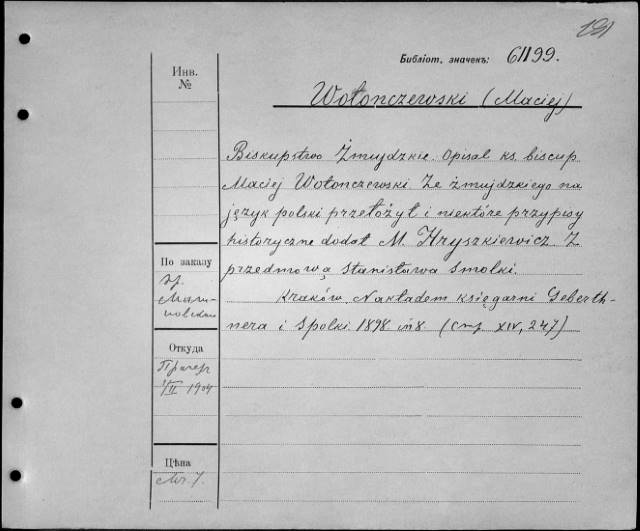 191
Библіот. значекъ: 61199.
Инв.
№
Wołonczewski (Maciej)
Biskupstwo Żmujdzkie. Opisał ks. biscup
Maciej Wołonczewski. Ze żmujdzkiego na
język polski przełożył i niektóre przypisy
historyczne dodał M. Hryszkiewicz. Z
przedmową Stanisława Smolki.
Kraków. Nakładem księgarni Geberth-
nera i Spolki. 1898. in 8. (стр. XIV, 247)
По заказу
Откуда
1/II 1904
Цѣна